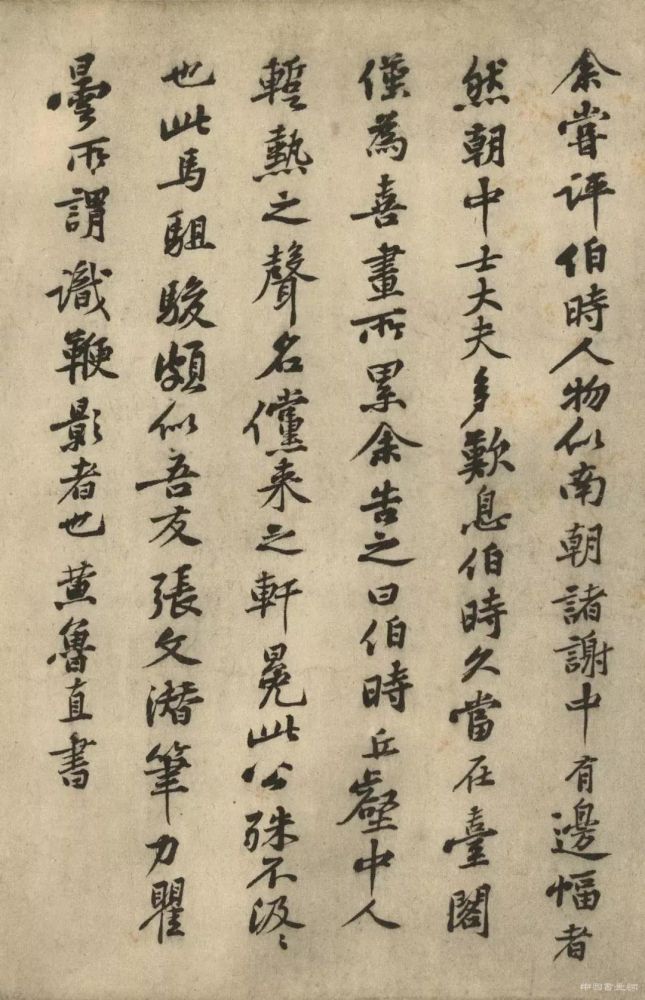 余嘗評伯時人物似南朝諸謝中有邊幅者
然朝中士大夫多歎息伯時久當在臺閣
僅為喜畫所累余告之曰伯時丘壑中人
蹔熱之聲名儻来之軒冕此公殊不汲〻
也此馬駔駿頗似吾友張文潛筆力瞿
曇所謂識鞭影者也黄魯直書